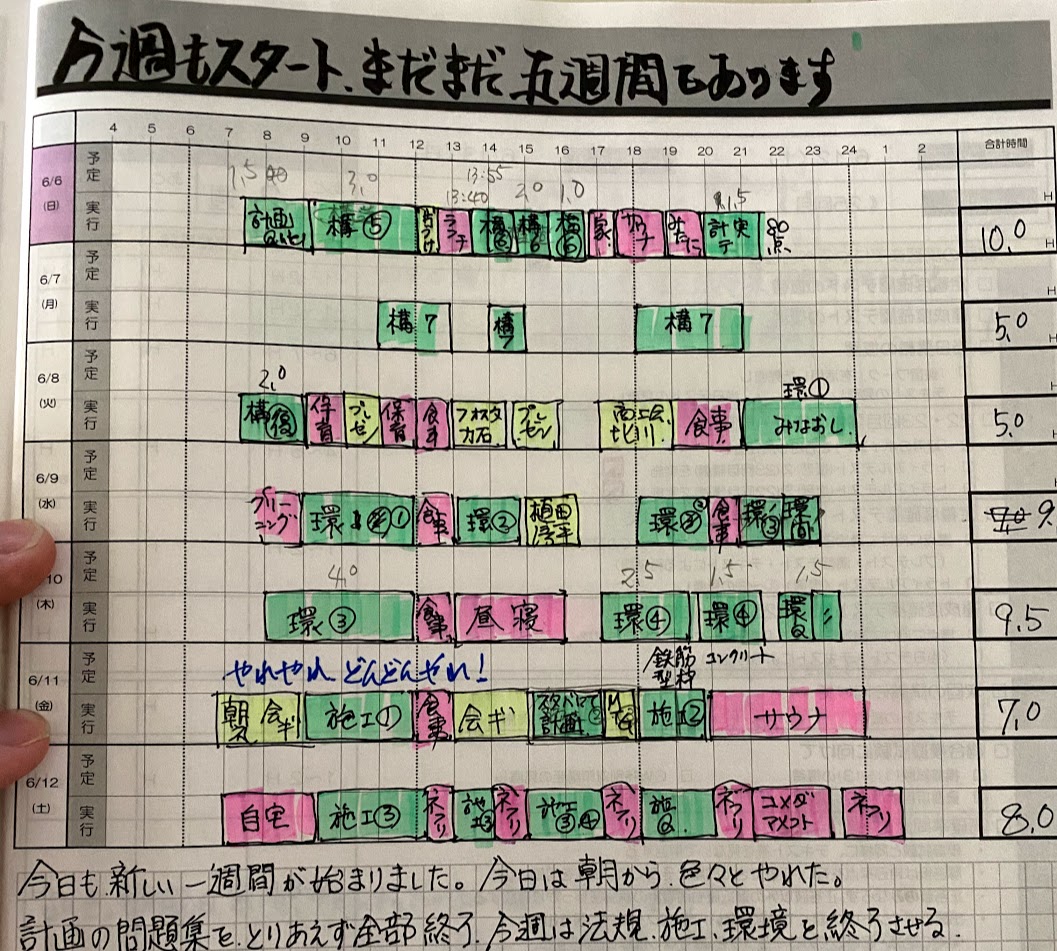 今週もスタート、まだまだ五週間であります
4 5 6 7 8 9 10 11 12 13 14 15 16 17 18 19 20 21 22 23 24 1 2 合計時間
6/6 (日) 予定 1,5 3,0 13:40 13:55 2,0 1,0 1,5 H
実行 計画 構⑤ 片づけ ランチ 構⑥ 構6 構⑥ 家 サウナ 計実テ 80点 10,0 H
6/7 (月) 予定 H
実行 構7 構7 構7 5,0 H
6/8 (火) 予定 2,0 環① H
実行 構復 保育 プレゼン 保育 食事 プレゼン 商工会 食事 みなおし 5,0 H
6/9 (水) 予定
実行 クリーニング 環 ① 食事 環② 環② 食事 環③ 9.
10 (木) 予定 4,0 2,5 1,5 1,5
実行 環③ 食事 昼寝 環④ 環④ 環Q 9.5
6/11 (金) 予定 やれやれ どんどんやれ! 鉄筋 型枠 コンクリート
実行 朝 会ギ 施工① 食事 会ギ 計画 施工② サウナ 7,0
6/12 (土) 予定
実行 自宅 施工③ ネフリ 施工③ ネフリ 施工③④ ネフリ 施Q. ネフリ コメダ アメント ネフリ 8,0
今日も新しい一週間が始まりました。今日は朝から、色々とやれた。
計画の問題集を、とりあえず全部終了、今週は法規、施工、環境を終了させる。